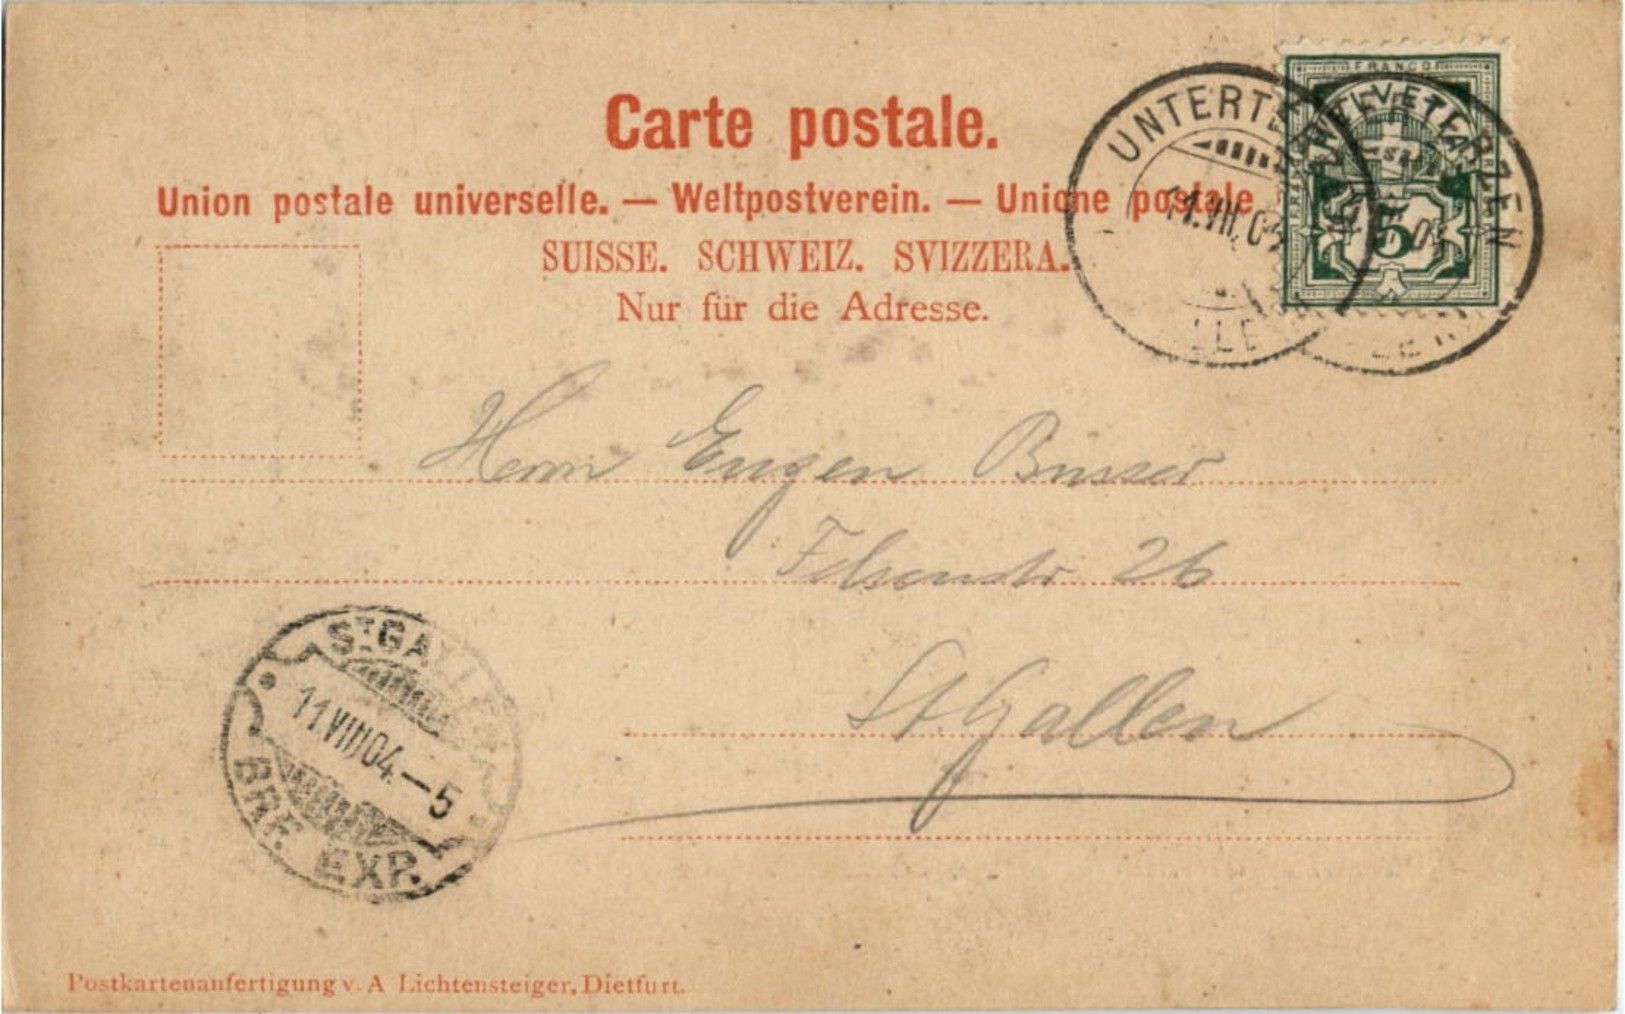 FRANCO
HELVETIA
5
UNTERTERZEN
11.VIII.04
Carte postale.
Union postale universelle. — Weltpostverein. — Unione postale
SUISSE. SCHWEIZ. SVIZZERA.
Nur für die Adresse.
Herrn Eugen Büsser
Felsenstr 26
St. Gallen
ST. GALLEN
11 VIII 04.—5
BRF. EXP.
Postkartenanfertigung v. A Lichtensteiger, Dietfurt.